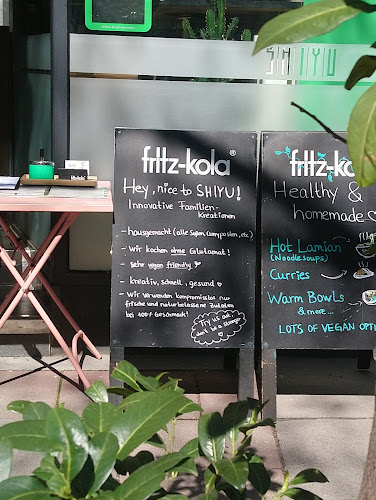 SHIYU
fritz-kola®
Hey, nice to SHIYU!
Innovative Familien-
kreationen
- hausgemacht (alle Supen, Currypasten, etc)
- wir kochen ohne Glutamat!
- sehr vegan friendly
- kreativ, schnell, gesund
- wir verwenden kompromisslos nur
frische und naturbelassene Zutaten
bei 100% Geschmack!
Try us out,
don't be a stranger
fritz-ko
Healthy &
homemade
Hot Lamian
(Noodlesoups)
Curries
Warm Bowls
& more...
LOTS OF VEGAN OPTI